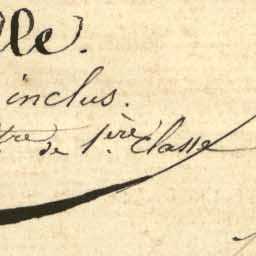 lle.
inclus.
tre de 1.ère Classe